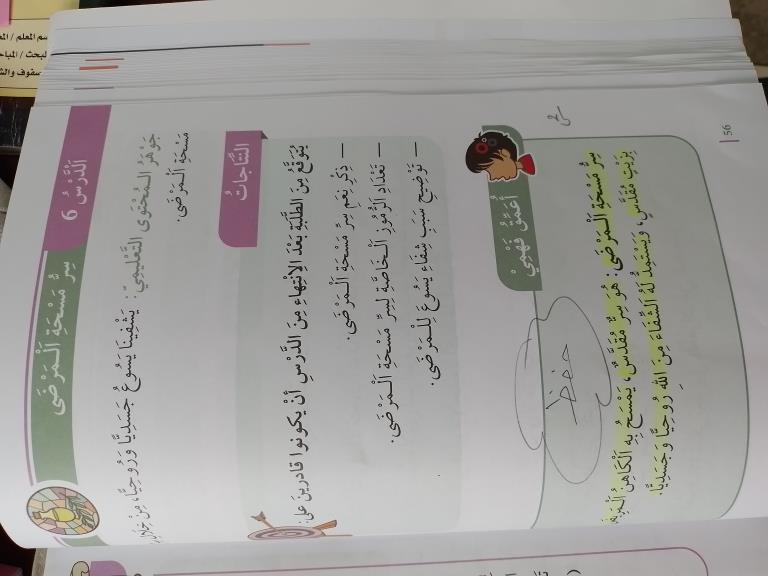 اَلدَّرْسُ 6
سِرُّ مَسْحَةِ اَلْمَرْضَى
جَوْهَرُ الـمُحْتَوَى التَّعْلِيمِيِّ: يَشْفِينَا يَسُوعُ جَسَدِيًّا وَرُوحِيًّا، مِنْ خِلَالِ
مَسْحَةِ اَلْمَرْضَى.
النَّتَاجَاتُ
يُتَوَقَّعُ مِنَ الطَّلَبَةِ بَعْدَ الاِنْتِهاءِ مِنَ الدَّرْسِ أَنْ يَكونوا قادِرينَ عَلى:
– ذِكْرِ نِعَمِ سِرِّ مَسْحَةِ اَلْمَرْضَى.
– تَعْدَادِ اَلرُّمُوزِ اَلْخَاصَّةِ لِسِرِّ مَسْحَةِ اَلْمَرْضَى.
– تَوْضِيحِ سَبَبِ شِفَاءِ يَسُوعَ لِلْمَرْضَى.
أُعَمِّقُ فَهْمِيْ
حفظ
سِرُّ مَسْحَةِ اَلْمَرْضَى: هُوَ سِرٌّ مُقَدَّسٌ، يَمْسَحُ بِهِ اَلْكَاهِنُ
بِزَيْتٍ مُقَدَّسٍ، وَيَسْتَمِدُّ لَهُ الشِّفَاءَ مِنَ اللهِ رُوحِيًّا وَجَسَدِيًّا.
56